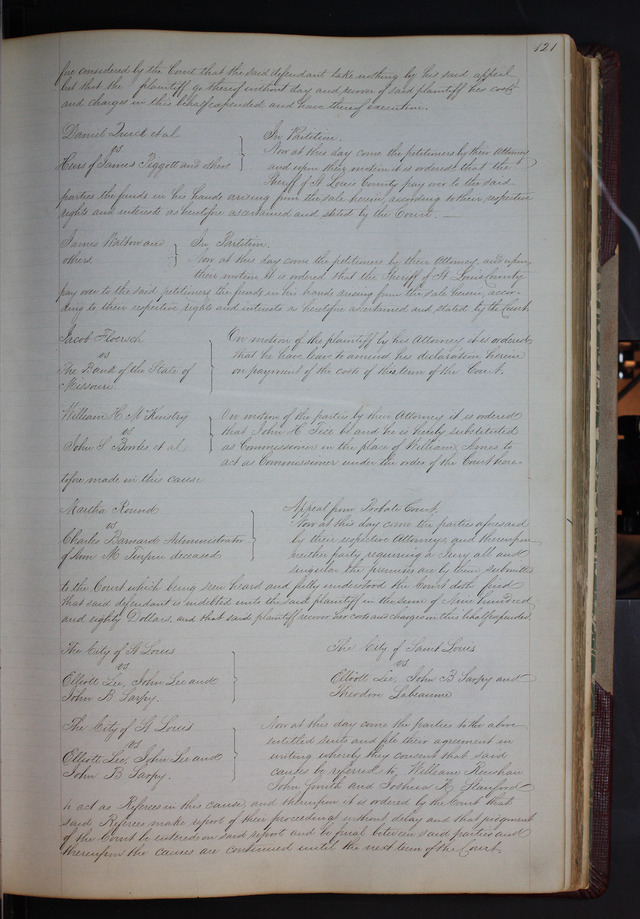 121
fore considered by the Court that the said defendant take nothing by his said appeal
but that the plaintiff go thereof without day and recover of said plaintiff her costs
and charges in this behalf expended and have thereof execution.
Daniel Quick et al
vs
Heirs of James Piggott and others
In Partition.
Now at this day come the petitioners by their Attorney
and upon their motion it is ordered that the
Sheriff of St Louis County pay over to the said
parties the funds in his hands arising from the sale herein, according to their respective
rights and interests as heretofore ascertained and stated by the Court. —
James Wilton and
others
In Partition.
Now at this day come the petitioners by their Attorney, and upon
their motion it is ordered that the Sheriff of St. Louis County
pay over to the said petitioners the funds in his hands arising from the sale herein, accor-
ding to their respective rights and interests as heretofore ascertained and stated by the Court.
Jacob Floersch
vs
The Bank of the State of
Missouri.
On motion of the plaintiff by his Attorney it is ordered
that he have leave to amend his declaration herein
on payment of the costs of this term of the Court.
William H McKinstry
vs
John S Bowles et al
On motion of the parties by their Attorney it is ordered
that John H be and he is hereby substituted
as Commissioner in the place of William to
act as Commissioner under the order of the Court here-
tofore made in this cause
Martha Round
vs
Charles Barnard Administrator
of M Turpin deceased
Appeal from Probate Court.
Now at this day come the parties aforesaid
by their respective Attorneys, and thereupon
neither party requiring a Jury all and
singular the premises are by them submitted
to the Court which being seen heard and fully understood the Court doth find
that said defendant is indebted unto the said plaintiff in the sum of Nine hundred
and eighty Dollars, and that said plaintiff recover her costs and charges in this behalf expended
The City of St Louis
vs
Elliott Lee, John Lee and
John B. Sarpy.
The City of Saint Louis
vs
Elliott Lee, John B Sarpy and
Theodore Labeaume
The City of St Louis
vs
Elliott Lee, John Lee and
John B Sarpy.
Now at this day come the parties to the above
entitled suits and file their agreement in
writing whereby they consent that said
causes be referred to William Renshaw
John Smith and Joshua Stanford
to act as Referees in this cause, and thereupon it is ordered by the Court that
said Referees make report of their proceedings without delay and that judgment
of the Court be entered on said report and be final between said parties and
thereupon the causes are continued until the next term of the Court.